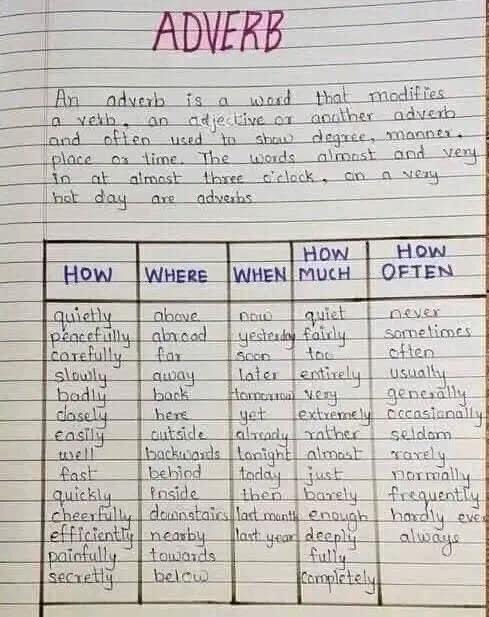 ADVERB
An adverb is a word that modifies
a verb, an adjective or another adverb
and often used to show degree, manner,
place or time. The words almost and very
in at almost three o'clock, on a very
hot day are adverbs
HOW WHERE WHEN HOW MUCH HOW OFTEN
quietly above now quiet never
peacefully abroad yesterday fairly sometimes
carefully far soon too often
slowly away later entirely usually
badly back tomorrow very generally
closely here yet extremely occasionally
easily outside already rather seldom
well backwards tonight almost rarely
fast behind today just normally
quickly Inside then barely frequently
cheerfully downstairs last month enough hardly ever
efficiently nearby last year deeply always
painfully towards fully
secretly below completely